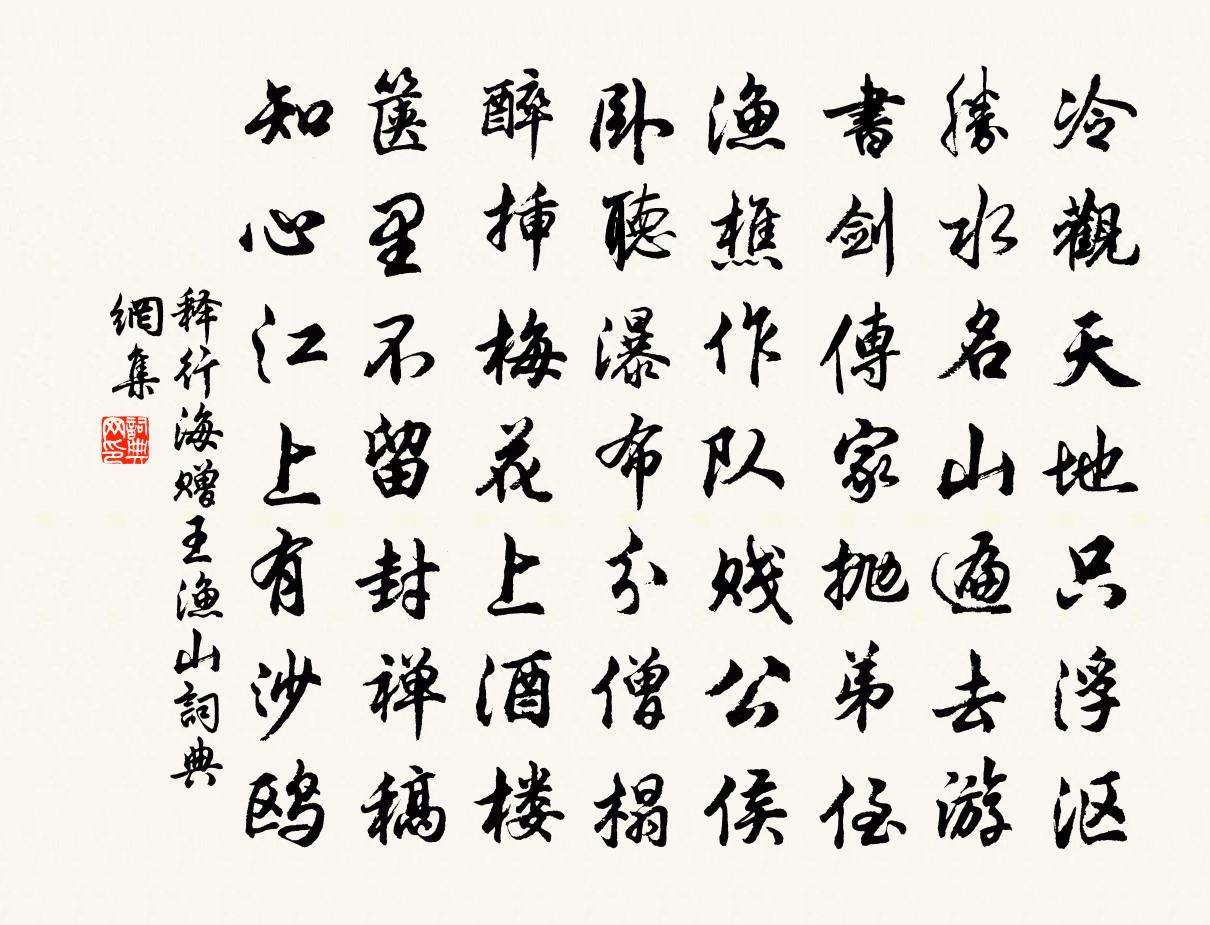 冷觀天地只浮沤
勝水名山遍去游
書劍傳家抛弟侄
漁樵作队贱公侯
卧聽瀑布分僧榻
醉挿梅花上酒楼
箧里不留封禅稿
知心江上有沙鸥
释行海赠王漁山詞典
網集
詞典
网印